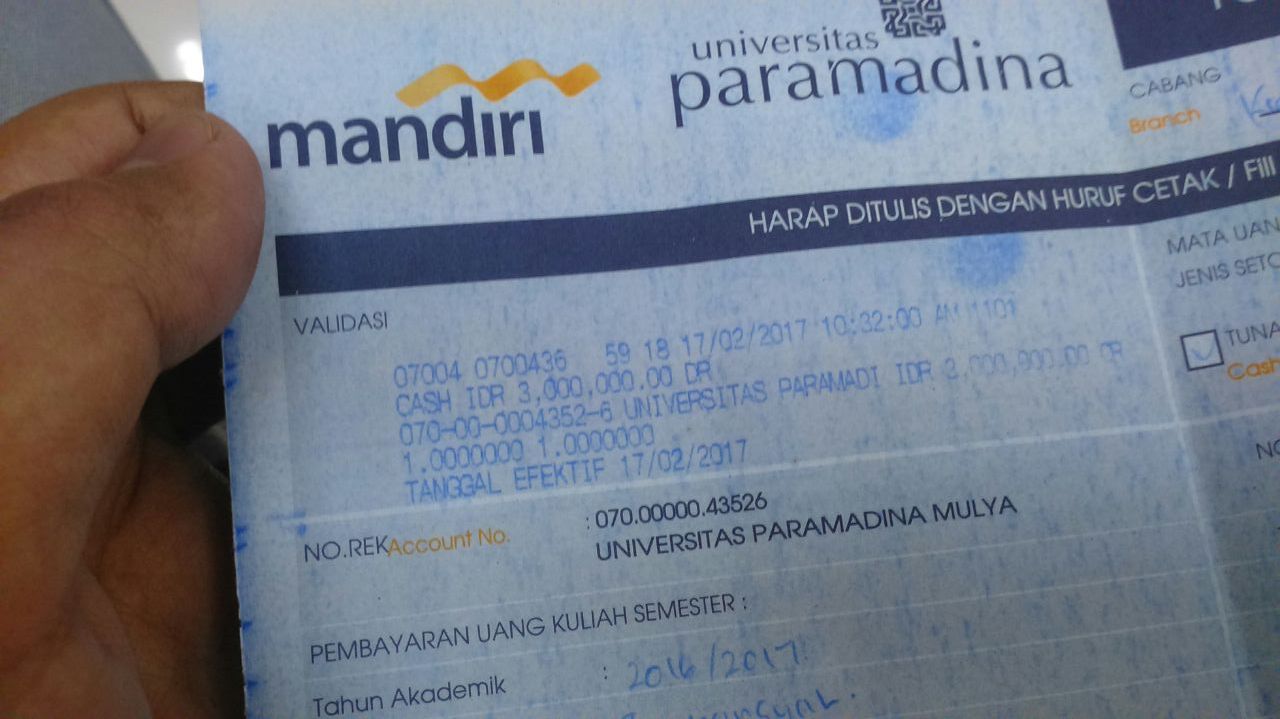 mandırı
universitas
paramadina
CABANG
Branch
HARAP DITULIS DENGAN HURUF CETAK / Fill
MATA UAN
JENIS SETO
TUNA
Cash
VALIDASI
07004 0700436 59 18 17/02/2017 10:32:00 AM 1101
CASH IDR 3,000,000.00 DR
070-00-0004352-6 UNIVERSITAS PARAMADI IDR
1.0000000 1.0000000
TANGGAL EFEKTIF 17/02/2017
NO.REK Account No. : 070.00000.43526
UNIVERSITAS PARAMADINA MULYA
PEMBAYARAN UANG KULIAH SEMESTER :
Tahun Akademik : 2016/2017